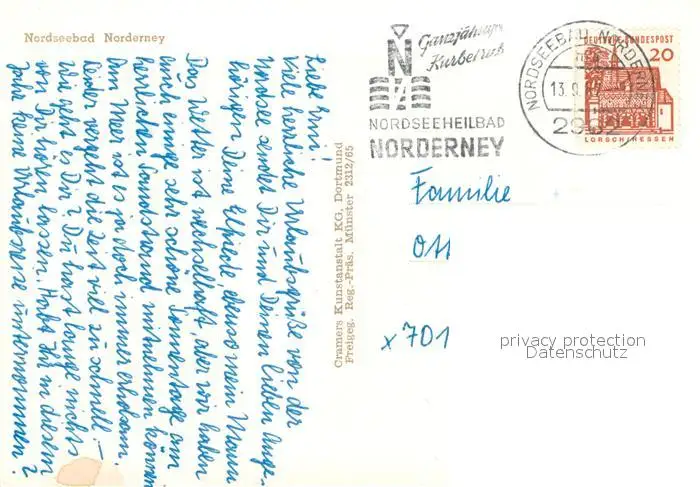 Nordseebad Norderney
Liebe Erni!
Viele herrliche Urlaubsgrüße von der
Nordsee sendet Dir und Deinen lieben Ange-
hörigen Deine Elfriede, ebenso mein Mann
Das Wetter ist wechselhaft, aber wir haben
auch einige sehr schöne Sonnentage am
herrliche Sandstrand mitnehmen können
Am Meer ist es ja doch immer erholsam.
Leider vergeht die Zeit viel zu schnell. –
Wie geht es Dir? Du hast lange nichts
von Dir hören lassen. Habt Ihr in diesem
Jahr keine Urlaubsreise unternommen?
Cramers Kunstanstalt KG, Dortmund
Freigeg. Reg.-Präs. Münster 2312/65
Ganzjähriger
Kurbetrieb
N
NORDSEEHEILBAD
NORDERNEY
NORDSEEBAD NORDERNEY
13.9.
2982
DEUTSCHE BUNDESPOST
20
LORSCH/HESSEN
Familie
Ott
x 701
privacy protection
Datenschutz